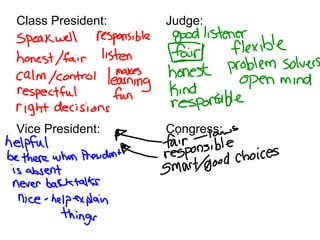 Class President:
speak well responsible
honest/fair listen
calm/control makes learning fun
respectful
right decisions
Judge:
good listener
fair flexible
honest problem solvers
kind open mind
responsible
Vice President:
helpful
be there when President
is absent
never back talks
nice - help explain
things
Congress:
fair - laws
responsible
smart/good choices